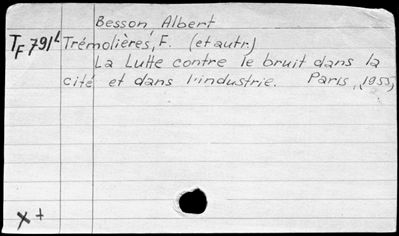 Besson Albert
TF 791L Trémolières, F. (et autr.)
La Lutte contre le bruit dans la
cité et dans l'industrie. Paris, (1955)
X +